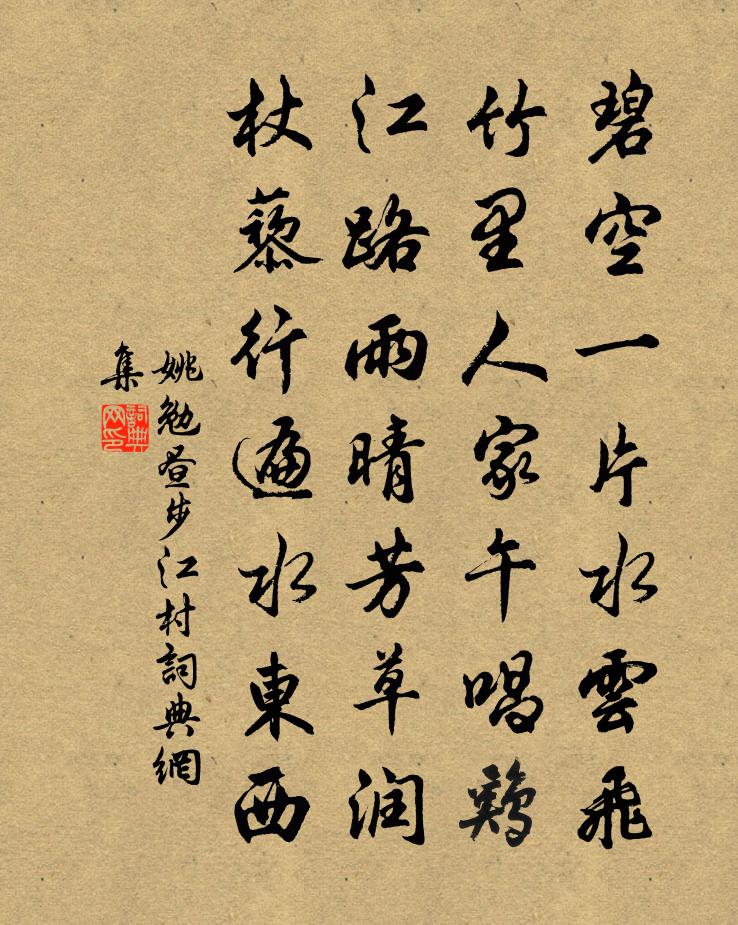 碧空一片水雲飛
竹里人家午唱鷄
江路雨晴芳草润
杖藜行遍水東西
姚勉昼步江村詞典網
集
詞典
网印